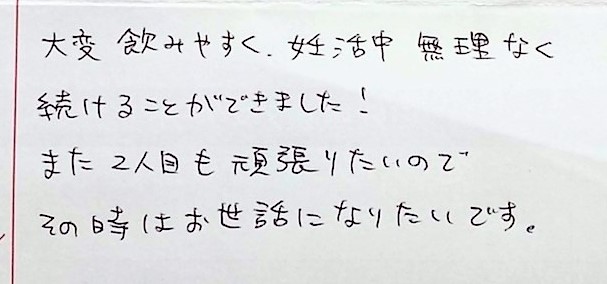 大変 飲みやすく、妊活中 無理なく
続けることができました!
また2人目も頑張りたいので
その時はお世話になりたいです。